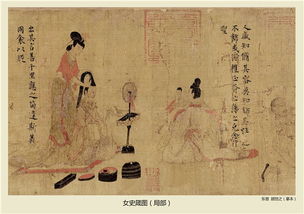 人咸知脩其容莫知飾其性性之
不飾或愆禮正斧之藻之克念作
聖
出其言善千里應之苟違斯義
同衾以疑
女史箴图（局部）
东晋 顾恺之（摹本）